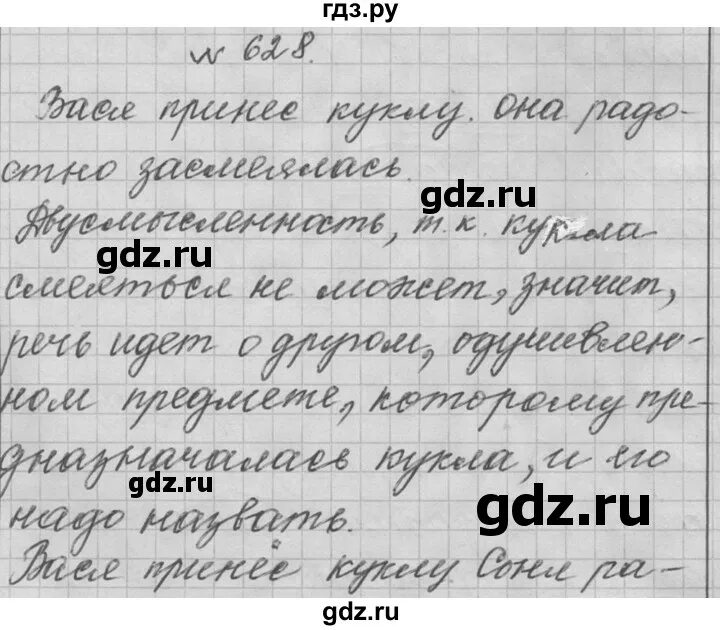 гдз.ру
№ 628.
Вася принес куклу. она радо-
стно засмеялась.
gdz.ru
Двусмысленность, т.к. кукла
gdz.ru
смеяться не может, значит,
речь идет о другом, одушевлен-
ном предмете, которому пре-
дназначалась кукла, и его
gdz.ru
gdz.ru
надо назвать.
Вася принёс куклу. Соня ра-
gdz.ru